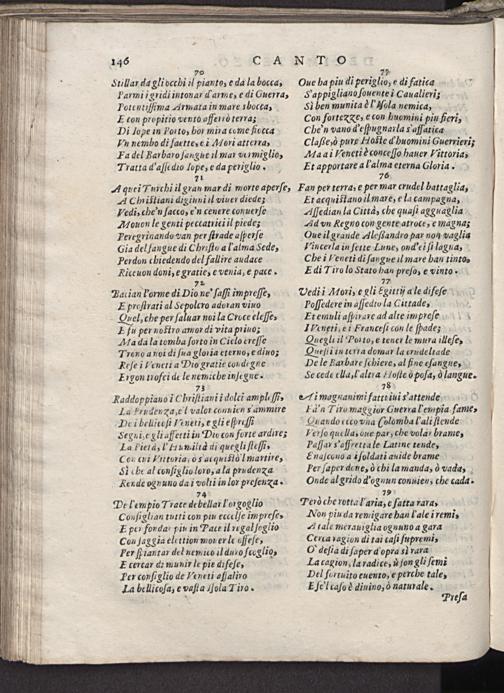 146 CANTO
70
Stillar da gli occhi il pianto, e da la bocca,
Parmi i gridi intonar d'arme, e di Guerra,
Potentissima Armata in mare sbocca,
E con propitio vento afferrò terra;
Di Iope in Porto, hor mira come fiocca
Vn nembo di saette, e i Mori atterra,
Fa del Barbaro sangue il mar vermiglio,
Tratta d'assedio Iope, e da periglio.
71
A quei Turchi il gran mar di morte aperse,
A Christiani digiuni il viuer diede;
Vedi, che'n sacco, e'n cenere conuerse
Mouon le genti peccatrici il piede;
Peregrinando van per strade asperse
Gia del sangue di Christo a l'alma Sede,
Perdon chiedendo del fallire audace
Riceuon doni, e gratie, e venia, e pace.
72
Bacian l'orme di Dio ne' sassi impresse,
E prostrati al Sepolcro adoran viuo
Quel, che per saluar noi la Croce elesse,
E fu per nostro amor di vita priuo;
Ma da la tomba sorto in Cielo eresse
Trono a noi di sua gloria eterno, e diuo;
Rese i Veneti a Dio gratie condegne
Ergon trofei de le nemiche insegne.
73
Raddoppiano i Christiani i dolci amplessi,
La Prudenza, e'l valor connien s'ammire
De i bellicosi Veneti, e gli espressi
Segni, e gli affetti in Dio con forte ardire;
La Pietà, l'Humiltà di quegli stessi,
Con cui Vittoria, ò s'acquistò'l martire,
Sì che al consiglio loro, a la prudenza
Rende ognuno da i volti in lor presenza.
74
De l'empio Trace debellar l'orgoglio
Consiglian tutti con piu eccelse imprese,
E per fondar piu in Pace il regal soglio
Con saggia elettion mouer le offese,
Per spiantar del nemico il duro scoglio,
E cercar di munir le pie difese,
Per consiglio de Veneti assaliro
La bellicosa, e vasta Isola Tiro.
75
Oue ha piu di periglio, e di fatica
S'appigliano souente i Caualieri;
Sì ben munita è l'Isola nemica,
Con fortezze, e con huomini piu fieri,
Che'n van d'espugnarla s'affatica
Classe, ò pure Hoste d'huomini Guerrieri;
Ma a i Veneti è concesso hauer Vittoria,
Et apportare a l'alma eterna Gloria.
76
Fan per terra, e per mar crudel battaglia,
Et acquistano il mare, e la campagna,
Assedian la Città, che quasi agguaglia
Ad vn Regno con gente atroce, e magna;
Que il grande Alessandro par non vaglia
Vincerla in sette Lune, ond'ei si lagna,
Che i Veneti di sangue il mare han tinto,
E di Tiro lo Stato han preso, e vinto.
77
Vedi i Mori, e gli Egittij a le difese
Possedere in assedio la Cittade,
Et emuli aspirare ad alte imprese
I Veneti, e i Francesi con le spade;
Quegli il Porto, e tener le mura illese,
Questi in terra domar la crudeltade
De le Barbare schiere, al fine esangue,
Se cede ella, l'altra Hoste ò posa, ò langue.
78
A i magnanimi fatti iui s'attende
Fà'n Tiro maggior Guerra l'empia fame,
Quando ecco vna Colomba l'ali stende
Verso quella, oue par, che volar brame,
Passar s'affretta le Latine tende,
E nascono a i soldati auide brame
Per saper done, ò chi la manda, ò vada,
Onde al grido d'ognun conuien, che cada.
79
Però che rotta l'aria, e fatta rara,
Non piu da remigare han l'ale i remi,
A tale merauiglia ognuno a gara
Cerca ragion di tai casi supremi,
O' desia di saper d'opra sì rara
La cagion, la radice, ù son gli semi
Del fortuito euento, e perche tale,
E se'l caso è diuino, ò naturale.
Presa